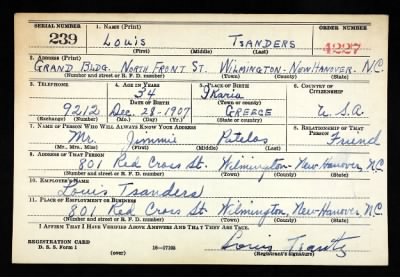 SERIAL NUMBER 1. NAME (Print) ORDER NUMBER
239 LOUIS TSANDERS 4227
(First) (Middle) (Last)
2. ADDRESS (Print)
GRAND BLDG. NORTH FRONT ST. WILMINGTON - NEW HANOVER. N.C.
(Number and street or R. F. D. number) (Town) (County) (State)
3. TELEPHONE 4. AGE IN YEARS 5. PLACE OF BIRTH 6. COUNTRY OF CITIZENSHIP
34 Ikaria
DATE OF BIRTH (Town or county)
9212 Dec. 28-1907 GREECE U.S.A.
(Exchange) (Number) (Mo.) (Day) (Yr.) (State or country)
7. NAME OF PERSON WHO WILL ALWAYS KNOW YOUR ADDRESS 8. RELATIONSHIP OF THAT PERSON
Mr. Jimmie Patelos Friend
(Mr., Mrs., Miss) (First) (Middle) (Last)
9. ADDRESS OF THAT PERSON
801 Red Cross St. Wilmington - New Hanover, N.C.
(Number and street or R. F. D. number) (Town) (County) (State)
10. EMPLOYER'S NAME
Louis Tsanders
11. PLACE OF EMPLOYMENT OR BUSINESS
801 Red Cross St. Wilmington, New-Hanover, N.C.
(Number and street or R. F. D. number) (Town) (County) (State)
I AFFIRM THAT I HAVE VERIFIED ABOVE ANSWERS AND THAT THEY ARE TRUE.
REGISTRATION CARD
D. S. S. Form 1 (over) 16-17105 Louis
(Registrant's signature)